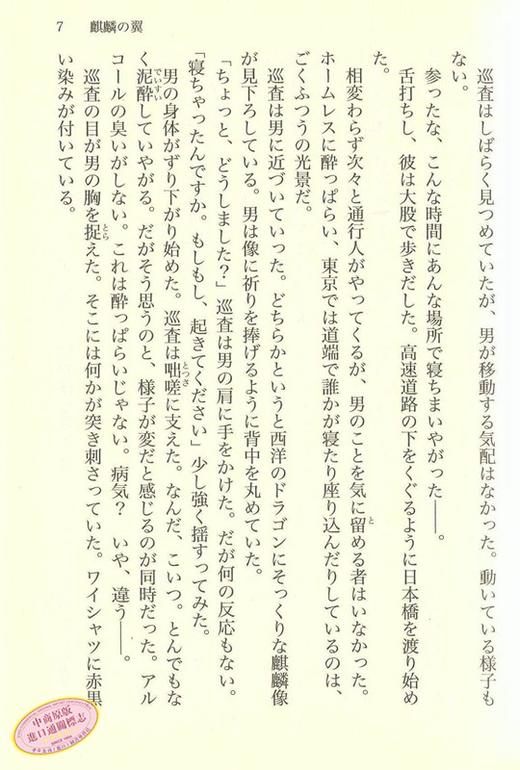 7　麒麟の翼
　巡査はしばらく見つめていたが、男が移動する気配はなかった。動いている様子も
ない。
　参ったな、こんな時間にあんな場所で寝ちまいやがった――。
　舌打ちし、彼は大股で歩きだした。高速道路の下をくぐるように日本橋を渡り始め
た。
　相変わらず次々と通行人がやってくるが、男のことを気に留める者はいなかった。
ホームレスに酔っぱらい、東京では道端で誰かが寝たり座り込んだりしているのは、
ごくふつうの光景だ。
　巡査は男に近づいていった。どちらかというと西洋のドラゴンにそっくりな麒麟像
が見下ろしている。男は像に祈りを捧げるように背中を丸めていた。
「ちょっと、どうしました？」巡査は男の肩に手をかけた。だが何の反応もない。
「寝ちゃったんですか。もしもし、起きてください」少し強く揺すってみた。
　男の身体がずり下がり始めた。巡査は咄嗟に支えた。なんだ、こいつ。とんでもな
く泥酔していやがる。だがそう思うのと、様子が変だと感じるのが同時だった。アル
コールの臭いがしない。これは酔っぱらいじゃない。病気？　いや、違う――。
　巡査の目が男の胸を捉えた。そこには何かが突き刺さっていた。ワイシャツに赤黒
い染みが付いている。
と
とっさ
でいすい
とら
中商原版
進口通關標志